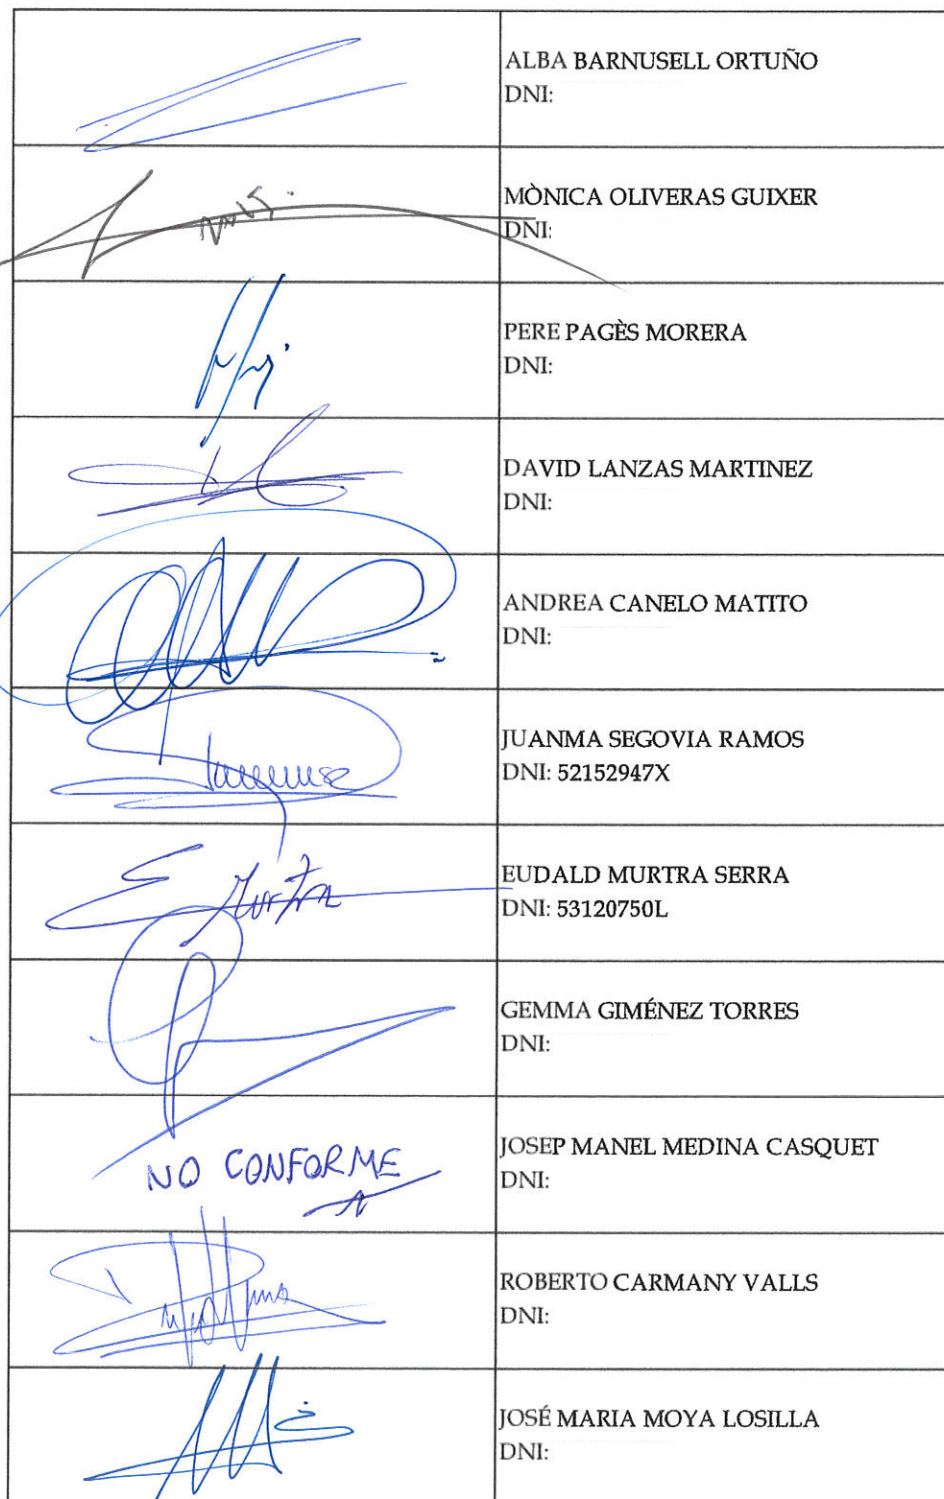 ALBA BARNUSELL ORTUÑO
DNI:
MÒNICA OLIVERAS GUIXER
DNI:
PERE PAGÈS MORERA
DNI:
DAVID LANZAS MARTINEZ
DNI:
ANDREA CANELO MATITO
DNI:
JUANMA SEGOVIA RAMOS
DNI: 52152947X
E Murtra
EUDALD MURTRA SERRA
DNI: 53120750L
GEMMA GIMÉNEZ TORRES
DNI:
NO CONFORME
JOSEP MANEL MEDINA CASQUET
DNI:
ROBERTO CARMANY VALLS
DNI:
JOSÉ MARIA MOYA LOSILLA
DNI: